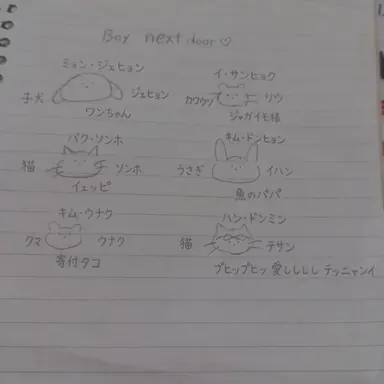 Boy next door♡
ミョン・ジェヒョン
子犬 ジェヒョン
ワンちゃん
イ・サンヒョク
カワウソ リウ
ジャガイモ様
パク・ソンホ
猫 ソンホ
イェッピ
キム・ドンヒョン
うさぎ イハン
魚のパパ
キム・ウナク
クマ ウナク
寄付タコ
ハン・ドンミン
猫 テサン
プヒップヒッ 愛ししし テッニャンイ